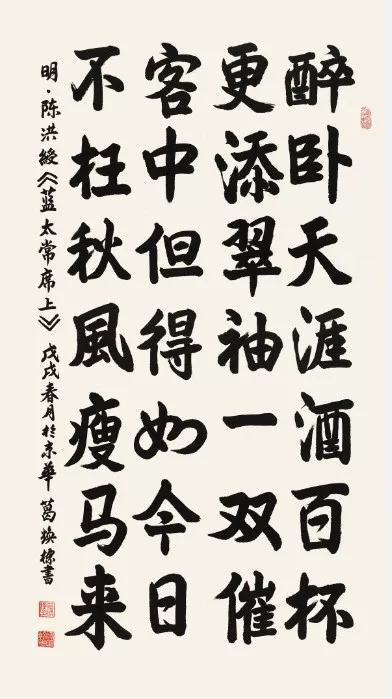 醉卧天涯酒百杯
更添翠袖一双催
客中但得如今日
不枉秋風瘦马来
明·陈洪綬《蓝太常席上》戊戌春月於京華 葛焕标書